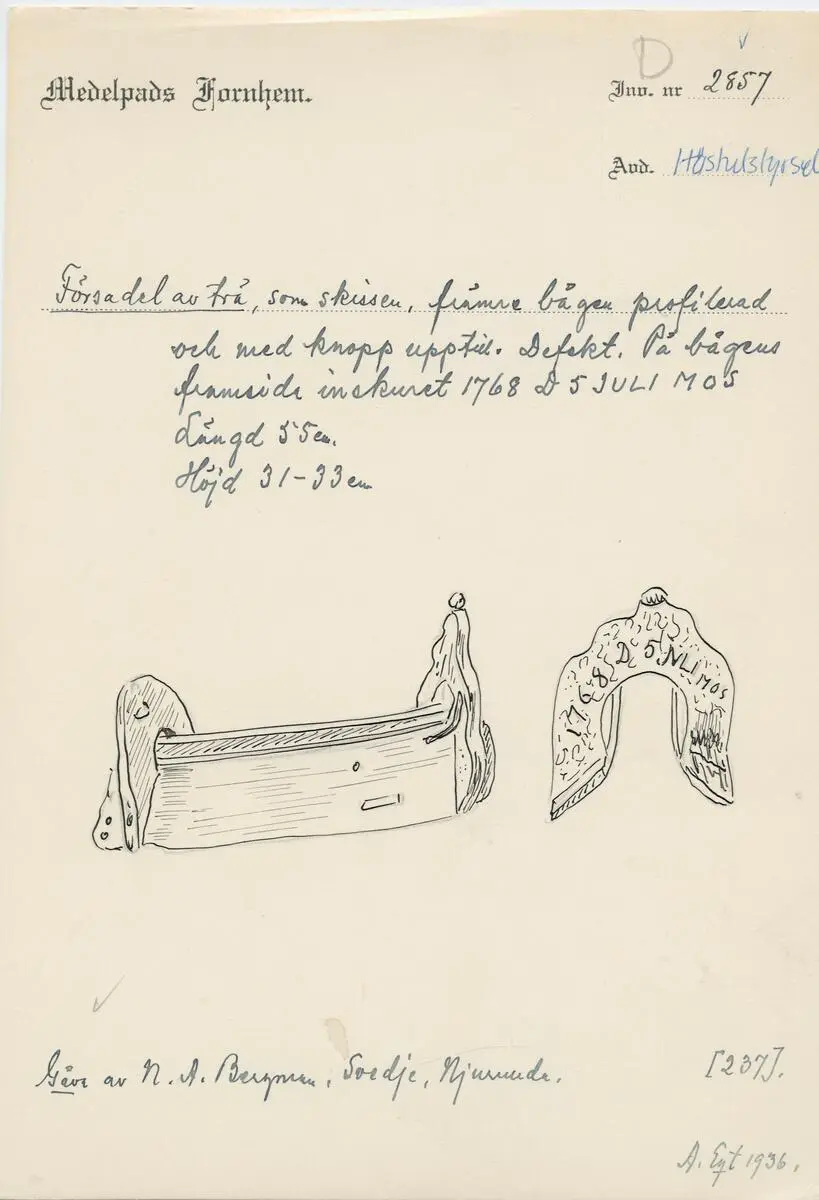 D
Medelpads Fornhem.
Inv. nr 2857
Avd.
Försadel av trä, som skissen, främre bågen profilerad
och med knopp upptill. Defekt. På bågens
framsida inskuret 1768 D 5 JULI MOS
Längd 55 cm.
Höjd 31-33 cm
1768 D 5 JULI MOS
Gåva av N. A. Bergman, Svedje, Njurunda.
[237].
A. Eqt 1936.